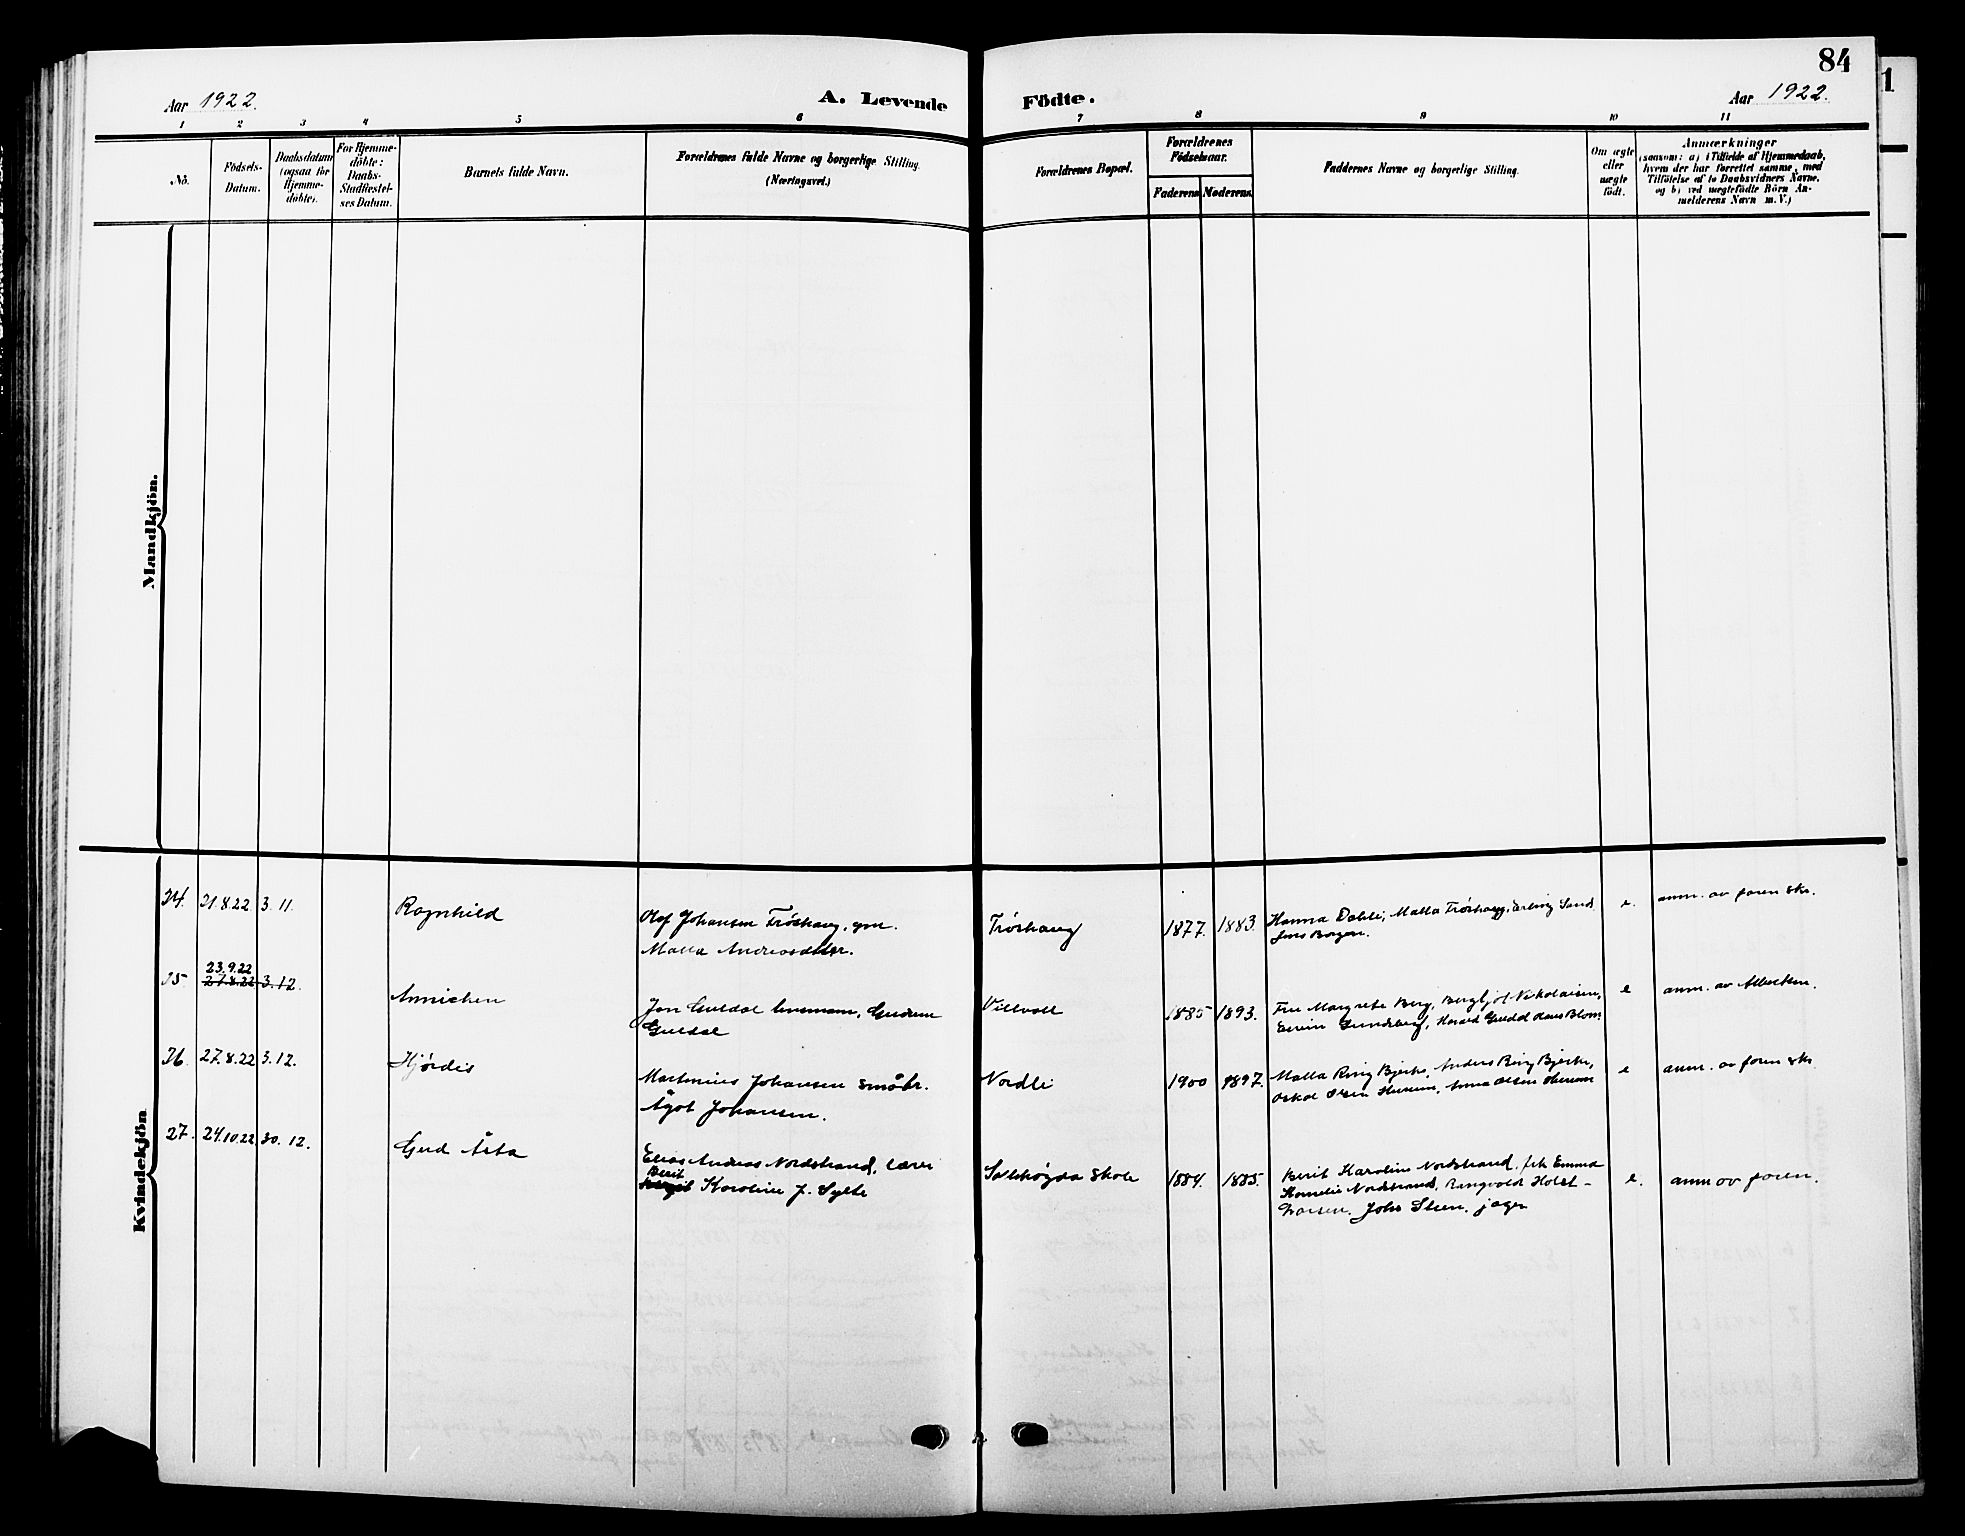 84
1
Aar 1922.
A. Levende Födte.
Aar 1922.
1 2 3 4 5 6 7 8 9 10 11
No.
Födsels-
Datum.
Daabsdatum
(ogsaa for
Hjemme-
döbte).
For Hjemme-
döbte:
Daabs-
Stadfæstel-
ses Datum.
Barnets fulde Navn.
Forældrenes fulde Navne og borgerlige Stilling.
(Næringsvei.)
Forældrenes Bopæl.
Forældrenes
Födselsaar.
Faderens Moderens.
Faddernes Navne og borgerlige Stilling.
Om ægte
eller
uægte
født.
Anmærkninger
(saasom: a) i Tilfælde af Hjemmedaab,
hvem der har forrettet samme, med
Tilföielse af to Daabsvidners Navne,
og b) ved uægtefödte Börn An-
melderens Navn m. V.)
Mandkjön.
Kvindekjön
24. 21.8.22 3.11. Ragnhild
Olaf Johansen Tröshaug, gm.
Malla Andreasdtter.
Tröshaug 1877. 1883.
Hanna Dahle; Malla Tröshaug, Erling Sand
Jens Borgen.
e. anm. av foren skr.
25 23.9.22
27.8.22 3.12. Annichen
Jon Guldal lensmann, Gudrun
Guldal
Villvoll 1885 1893.
Fru Margrete Berg, Bergljot Nikolaisen,
Harald Guldal Hans Blom
e anm. av
26 27.8.22 3.12. Hjørdis
Martinius Johansen småbr.
Ågot Johansen.
Nordli 1900 1897.
Malla Ring Bjerke, Anders Ring Bjerke,
Oskar Olsen Anna Olsen
e anm. av foren skr
27. 24.10.22 30.12. Gerd Åsta
Elias Andreas Nordstrand, lærer
Berit
Karoline J. Sylte
Solehøgda Skole 1884. 1885.
Berit Karoline Nordstrand, frk Emma
Kornelie Nordstrand, Rangvald Holst-
Larsen, Johs Olsen, jæger
e. anm av foren.